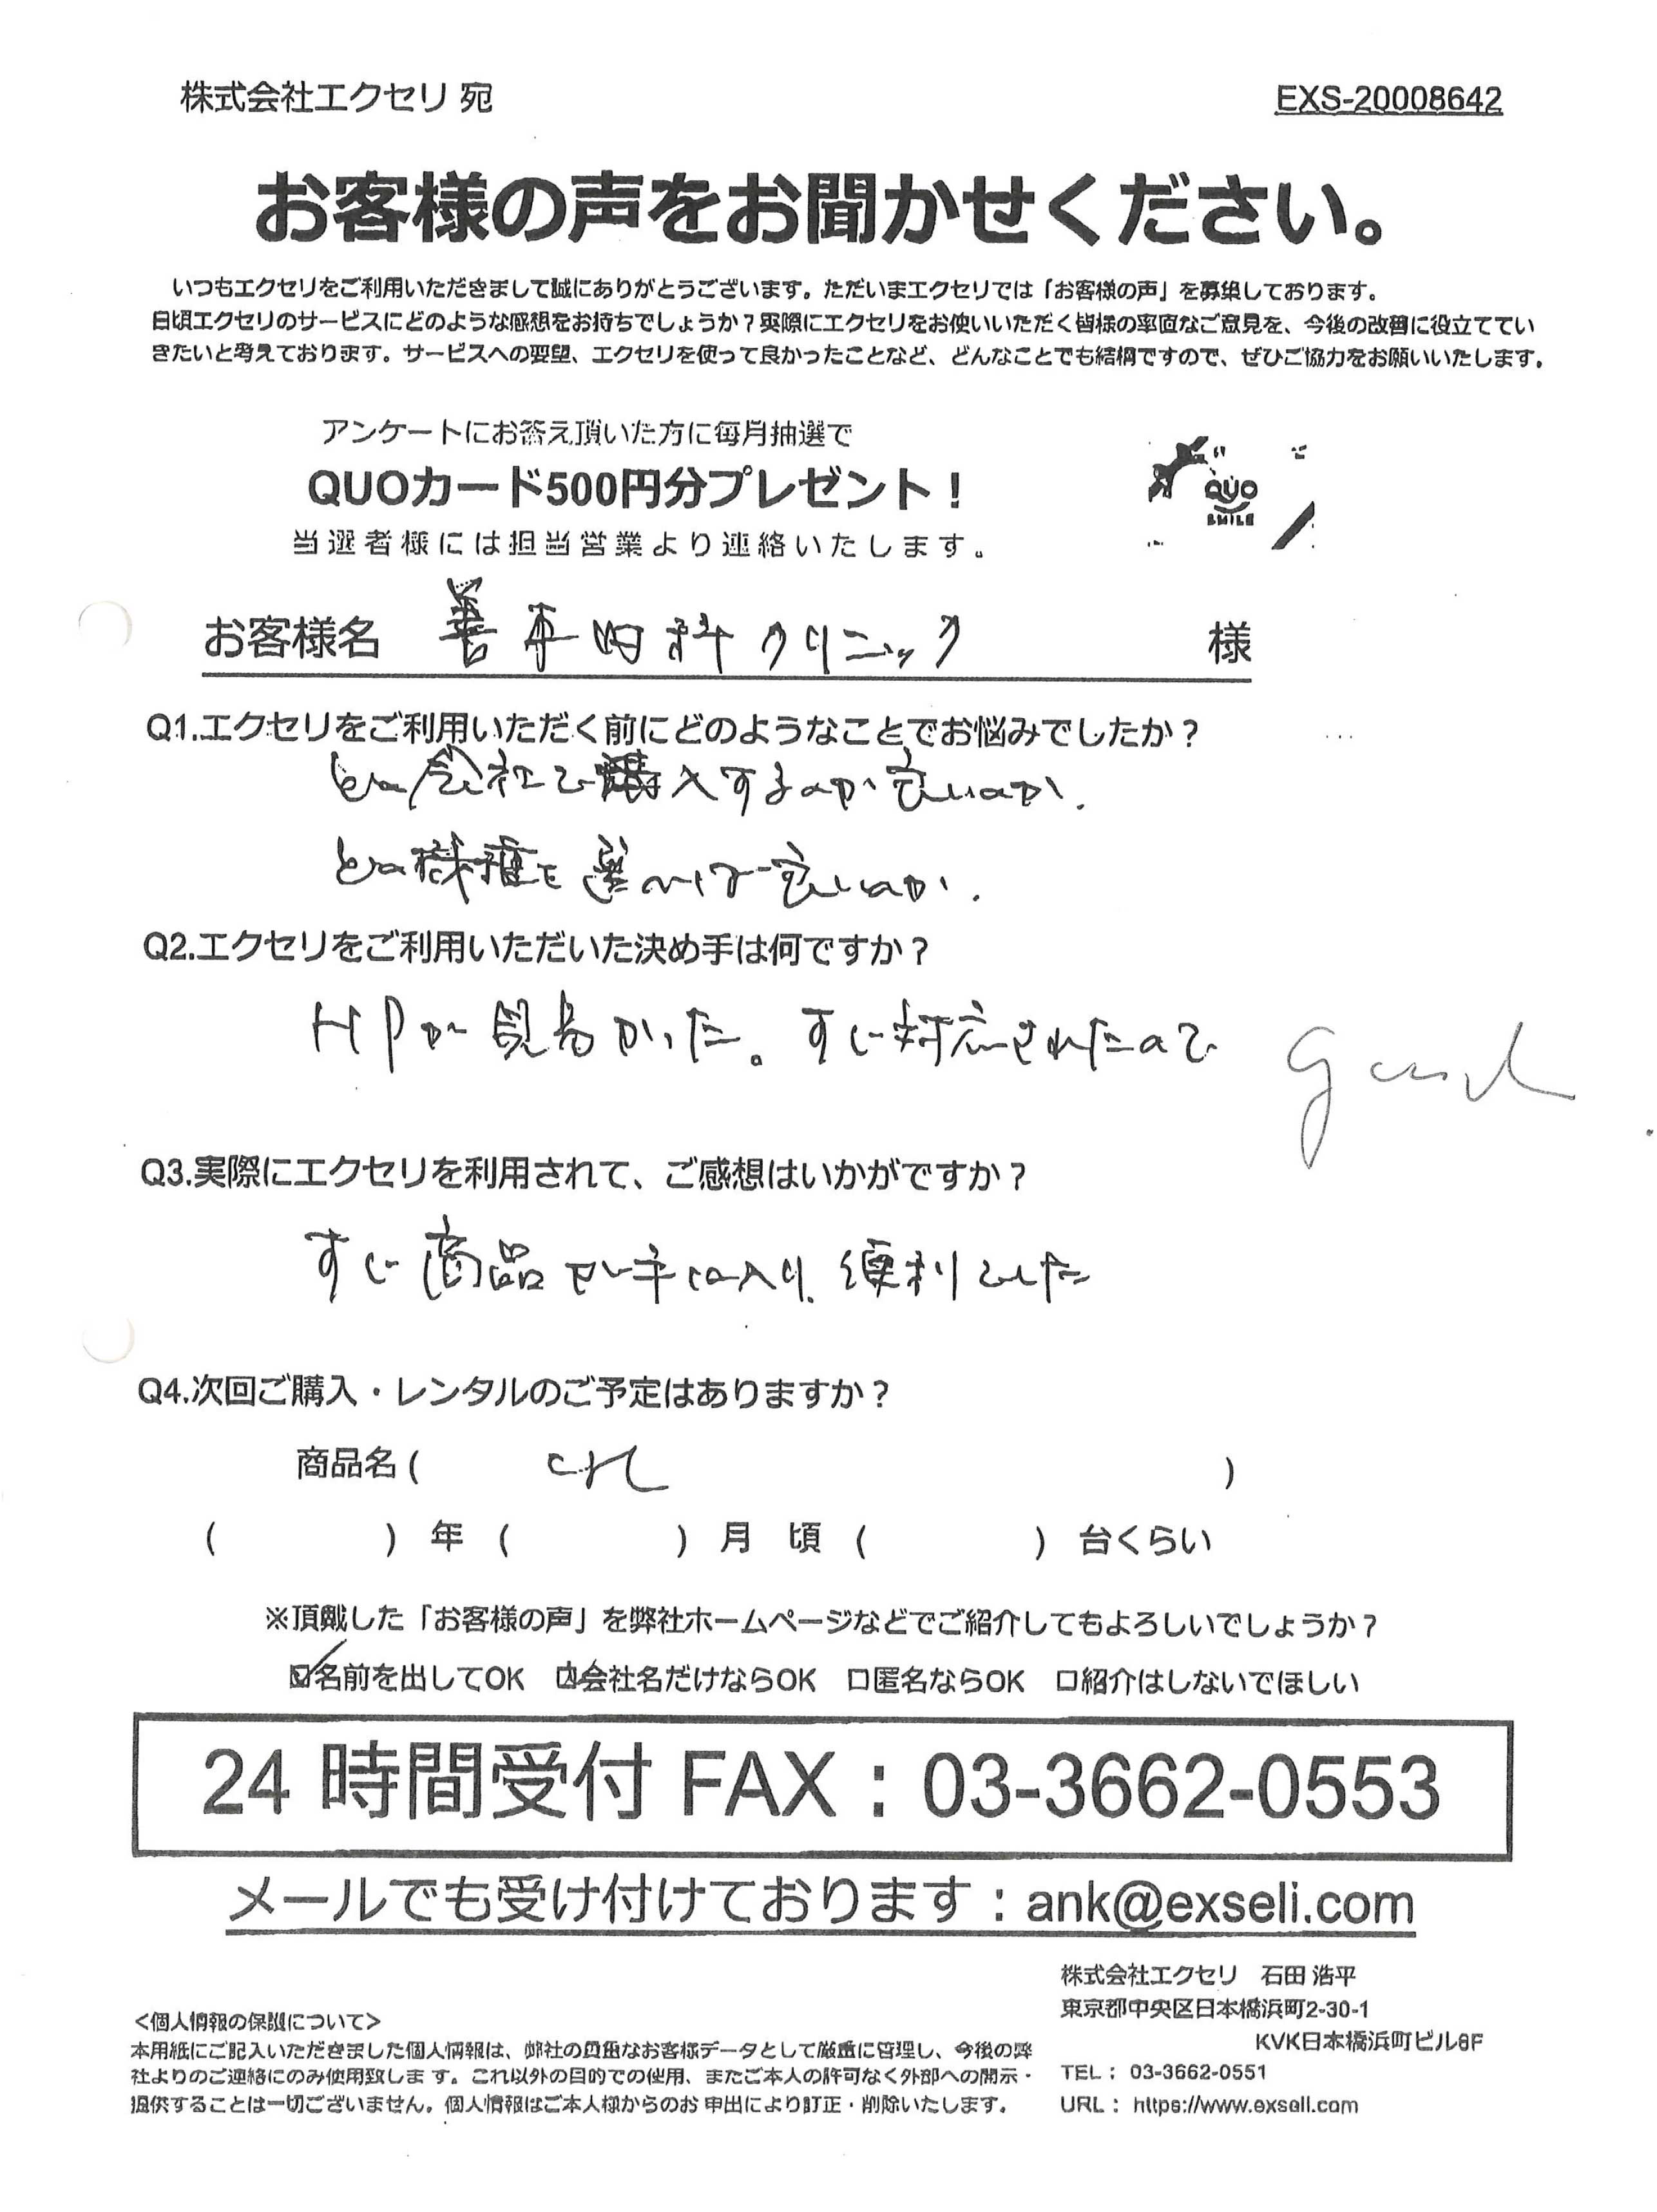 株式会社エクセリ 宛
EXS-20008642
お客様の声をお聞かせください。
いつもエクセリをご利用いただきまして誠にありがとうございます。ただいまエクセリでは「お客様の声」を募集しております。
日頃エクセリのサービスにどのような感想をお持ちでしょうか？実際にエクセリをお使いいただく皆様の率直なご意見を、今後の改善に役立ててい
きたいと考えております。サービスへの要望、エクセリを使って良かったことなど、どんなことでも結構ですので、ぜひご協力をお願いいたします。
アンケートにお答え頂いた方に毎月抽選で
QUOカード500円分プレゼント！
QUO
SMILE
当選者様には担当営業より連絡いたします。
お客様名 科クリニック 様
Q1.エクセリをご利用いただく前にどのようなことでお悩みでしたか？
どの会社で購入するのが良いのか.
どの機種を選べば良いのか.
Q2.エクセリをご利用いただいた決め手は何ですか？
HPが見易かった。すぐ対応されたので
Good
Q3.実際にエクセリを利用されて、ご感想はいかがですか？
すぐ商品が手に入り、便利でした
Q4.次回ご購入・レンタルのご予定はありますか？
商品名( )
( ) 年 ( ) 月 頃 ( ) 台くらい
※頂戴した「お客様の声」を弊社ホームページなどでご紹介してもよろしいでしょうか？
☑名前を出してOK ☑会社名だけならOK □匿名ならOK □紹介はしないでほしい
24 時間受付 FAX：03-3662-0553
メールでも受け付けております：ank@exseli.com
株式会社エクセリ 石田 浩平
東京都中央区日本橋浜町2-30-1
KVK日本橋浜町ビル8F
TEL： 03-3662-0551
URL： https://www.exseli.com
<個人情報の保護について>
本用紙にご記入いただきました個人情報は、弊社の貴重なお客様データとして厳重に管理し、今後の弊
社よりのご連絡にのみ使用致します。これ以外の目的での使用、またご本人の許可なく外部への開示・
提供することは一切ございません。個人情報はご本人様からのお申出により訂正・削除いたします。